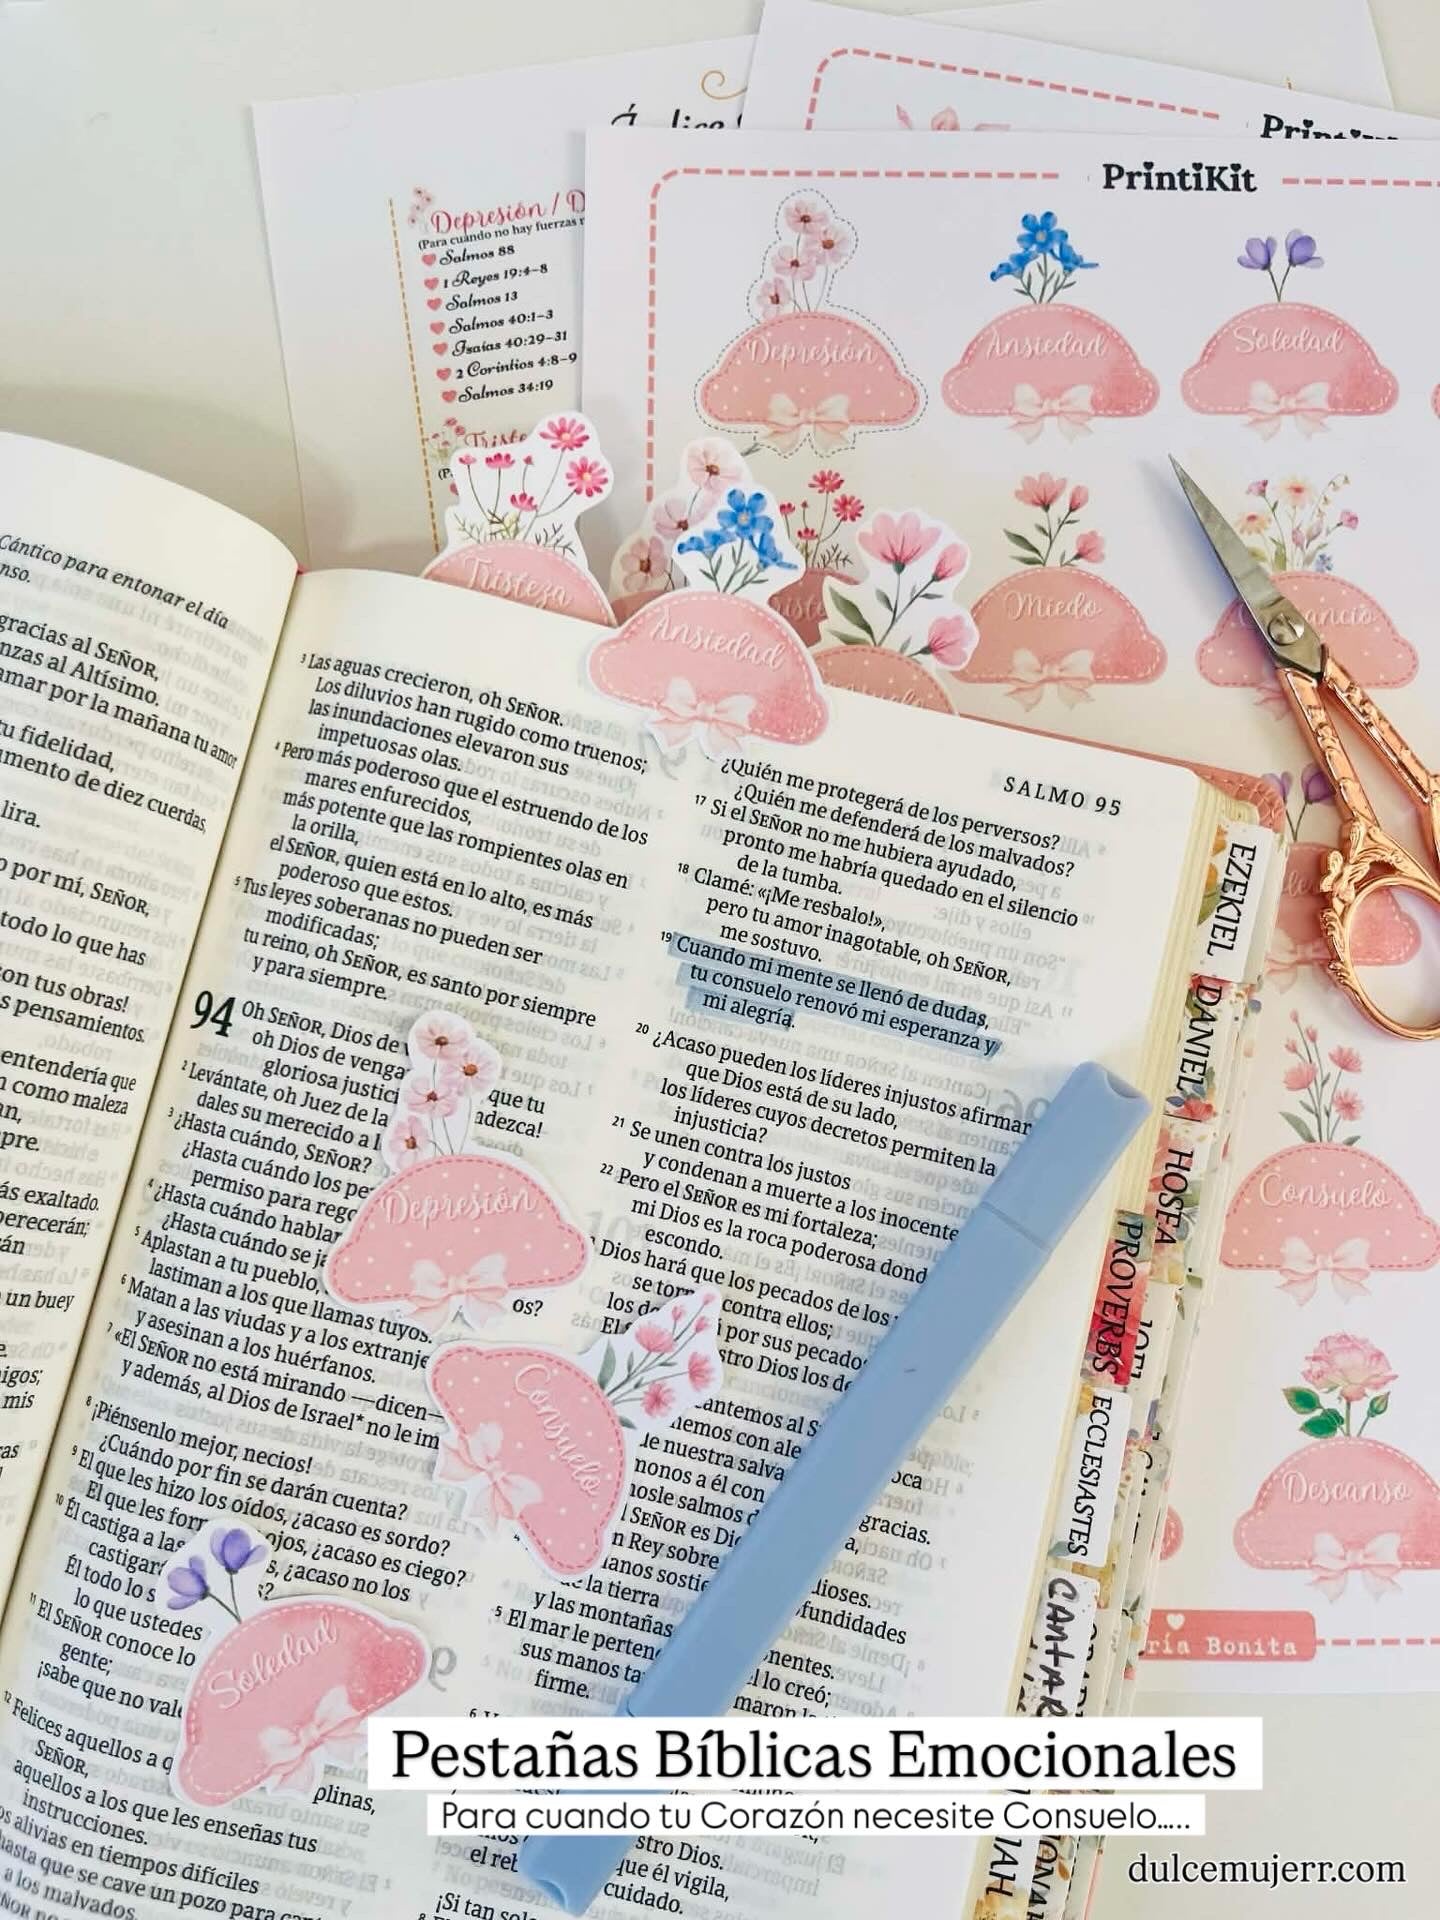 Índice
PrintiKit
PrintiKit
Depresión / D
(Para cuando no hay fuerzas
Salmos 88
1 Reyes 19:4-8
Salmos 13
Salmos 40:1-3
Isaías 40:29-31
2 Corintios 4:8-9
Salmos 34:19
Triste
Depresión
Ansiedad
Soledad
Miedo
Consuelo
Descanso
ría Bonita
Tristeza
Ansiedad
Cántico para entonar el día
nso.
gracias al SEÑOR,
nzas al Altísimo.
amar por la mañana tu amor
tu fidelidad,
umento de diez cuerdas,
lira.
o por mí, SEÑOR,
todo lo que has
on tus obras!
s pensamientos.
entendería que
n como maleza
an,
pre.
ás exaltado.
perecerán;
án
un buey
migos;
mis
3 Las aguas crecieron, oh SEÑOR.
Los diluvios han rugido como truenos;
las inundaciones elevaron sus
impetuosas olas.
4 Pero más poderoso que el estruendo de los
mares enfurecidos,
más potente que las rompientes olas en
la orilla,
el SEÑOR, quien está en lo alto, es más
poderoso que estos.
5 Tus leyes soberanas no pueden ser
modificadas;
tu reino, oh SEÑOR, es santo por siempre
y para siempre.
94 Oh SEÑOR, Dios de
oh Dios de venga
gloriosa justici que tu
2 Levántate, oh Juez de la
dales su merecido a l adezca!
3 ¿Hasta cuándo, SEÑOR?
¿Hasta cuándo los pe
permiso para rego
4 ¿Hasta cuándo hablar
¿Hasta cuándo se ja
5 Aplastan a tu pueblo,
lastiman a los que llamas tuyos.
6 Matan a las viudas y a los extranje
y asesinan a los huérfanos.
7 «El SEÑOR no está mirando —dicen—
y además, al Dios de Israel* no le im
8 ¡Piénsenlo mejor, necios!
¿Cuándo por fin se darán cuenta?
9 El que les hizo los oídos, ¿acaso es sordo?
El que les for ojos, ¿acaso es ciego?
10 Él castiga a las s, ¿acaso no los
castigar s?
Él todo lo s
lo que ustedes
11 El SEÑOR conoce lo
gente;
¡sabe que no val
12 Felices aquellos a q plinas,
SEÑOR,
aquellos a los que les enseñas tus
instrucciones.
s alivias en tiempos difíciles
hasta que se cave un pozo para
a los malvados.
Depresión
Consuelo
Soledad
SALMO 95
¿Quién me protegerá de los perversos?
¿Quién me defenderá de los malvados?
17 Si el SEÑOR no me hubiera ayudado,
pronto me habría quedado en el silencio
de la tumba.
18 Clamé: «¡Me resbalo!»,
pero tu amor inagotable, oh SEÑOR,
me sostuvo.
19 Cuando mi mente se llenó de dudas,
tu consuelo renovó mi esperanza y
mi alegría.
20 ¿Acaso pueden los líderes injustos afirmar
que Dios está de su lado,
los líderes cuyos decretos permiten la
injusticia?
21 Se unen contra los justos
y condenan a muerte a los inocente
22 Pero el SEÑOR es mi fortaleza;
mi Dios es la roca poderosa dond
escondo.
Dios hará que los pecados de los
se tor contra ellos;
los d á por sus pecado
El S stro Dios los de
antemos al S
emos con ale
de nuestra salva oca
monos a él con
nosle salmos d gracias.
SEÑOR es Di
n Rey sobre
anos sostie dioses.
de la tierra
y las montañas ofundidades
5 El mar le pertene
sus manos ta nentes.
firme. l lo creó;
stro Dios.
el reb que él vigila,
cuidado.
¡Si tan sol
EZEKIEL
DANIEL
HOSEA
PROVERBS
JOEL
ECCLESIASTES
CANTAR
Pestañas Bíblicas Emocionales
Para cuando tu Corazón necesite Consuelo.....
dulcemujerr.com